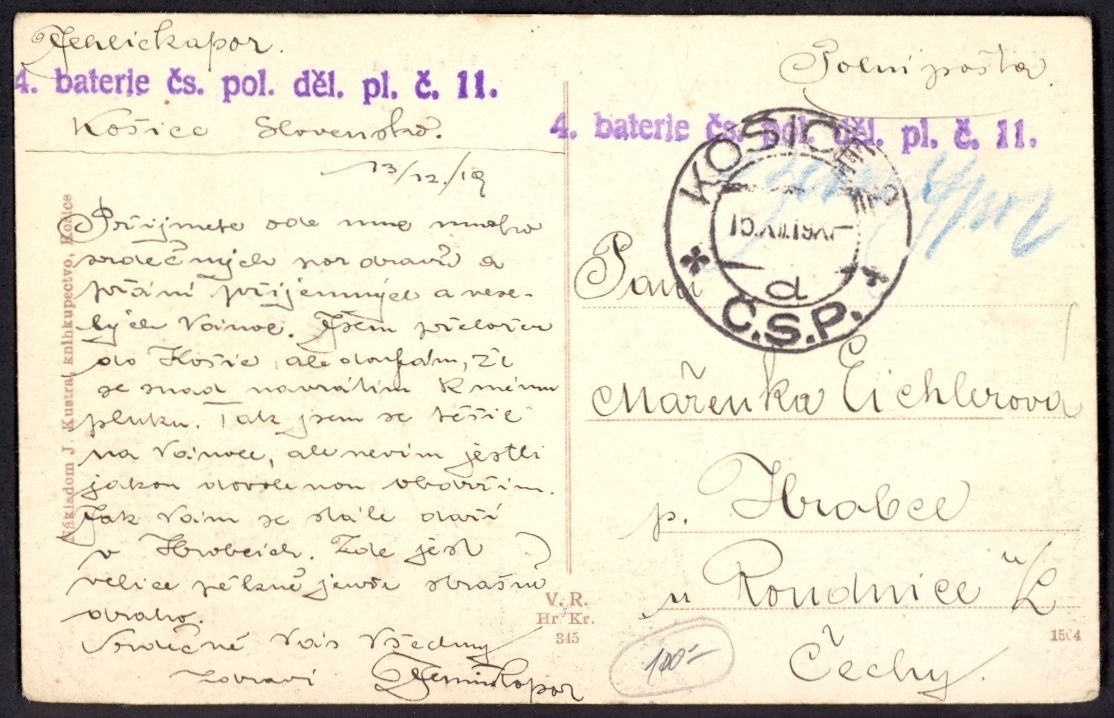 4. baterie čs. pol. děl. pl. č. 11.
Košice Slovensko.
13/12./19
Přijmete ode mne mnoho
srdečných pozdravů a
přání příjemných a vese-
lých Vánoc. Jsem přeložen
do Košic, ale doufám, že
se snad navrátím k mému
pluku. Tak jsem se těšil
na Vánoce, ale nevím jestli
jakou dovolenou obdržím.
Jak Vám se stále daří
v Hrobcích. Zde jest
velice pěkně jenže strašně
draho.
Srdečně Vás Všechny
zdraví
Nákladom J. Kustra, knihkupectvo, Košice
V. R.
Hr. Kr.
345
Polní pošta
4. baterie čs. pol. děl. pl. č. 11.
KOŠICE
d
Č.S.P.
Paní
Mařenka Eichlerova
p. Hrobce
u Roudnice n/L
Čechy.
100-